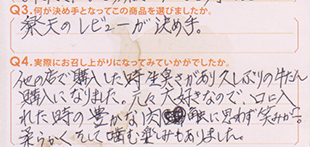 Q3.何が決め手となってこの商品を選びましたか。
楽天のレビューが決め手。
Q4.実際にお召し上がりになってみていかがでしたか。
他の店で購入した時生臭さがあり久しぶりの牛たん
購入になりました。元々大好きなので、口に入
れた時の豊かな肉に思わず笑みが。
柔らかく、そして噛む楽みもありました。